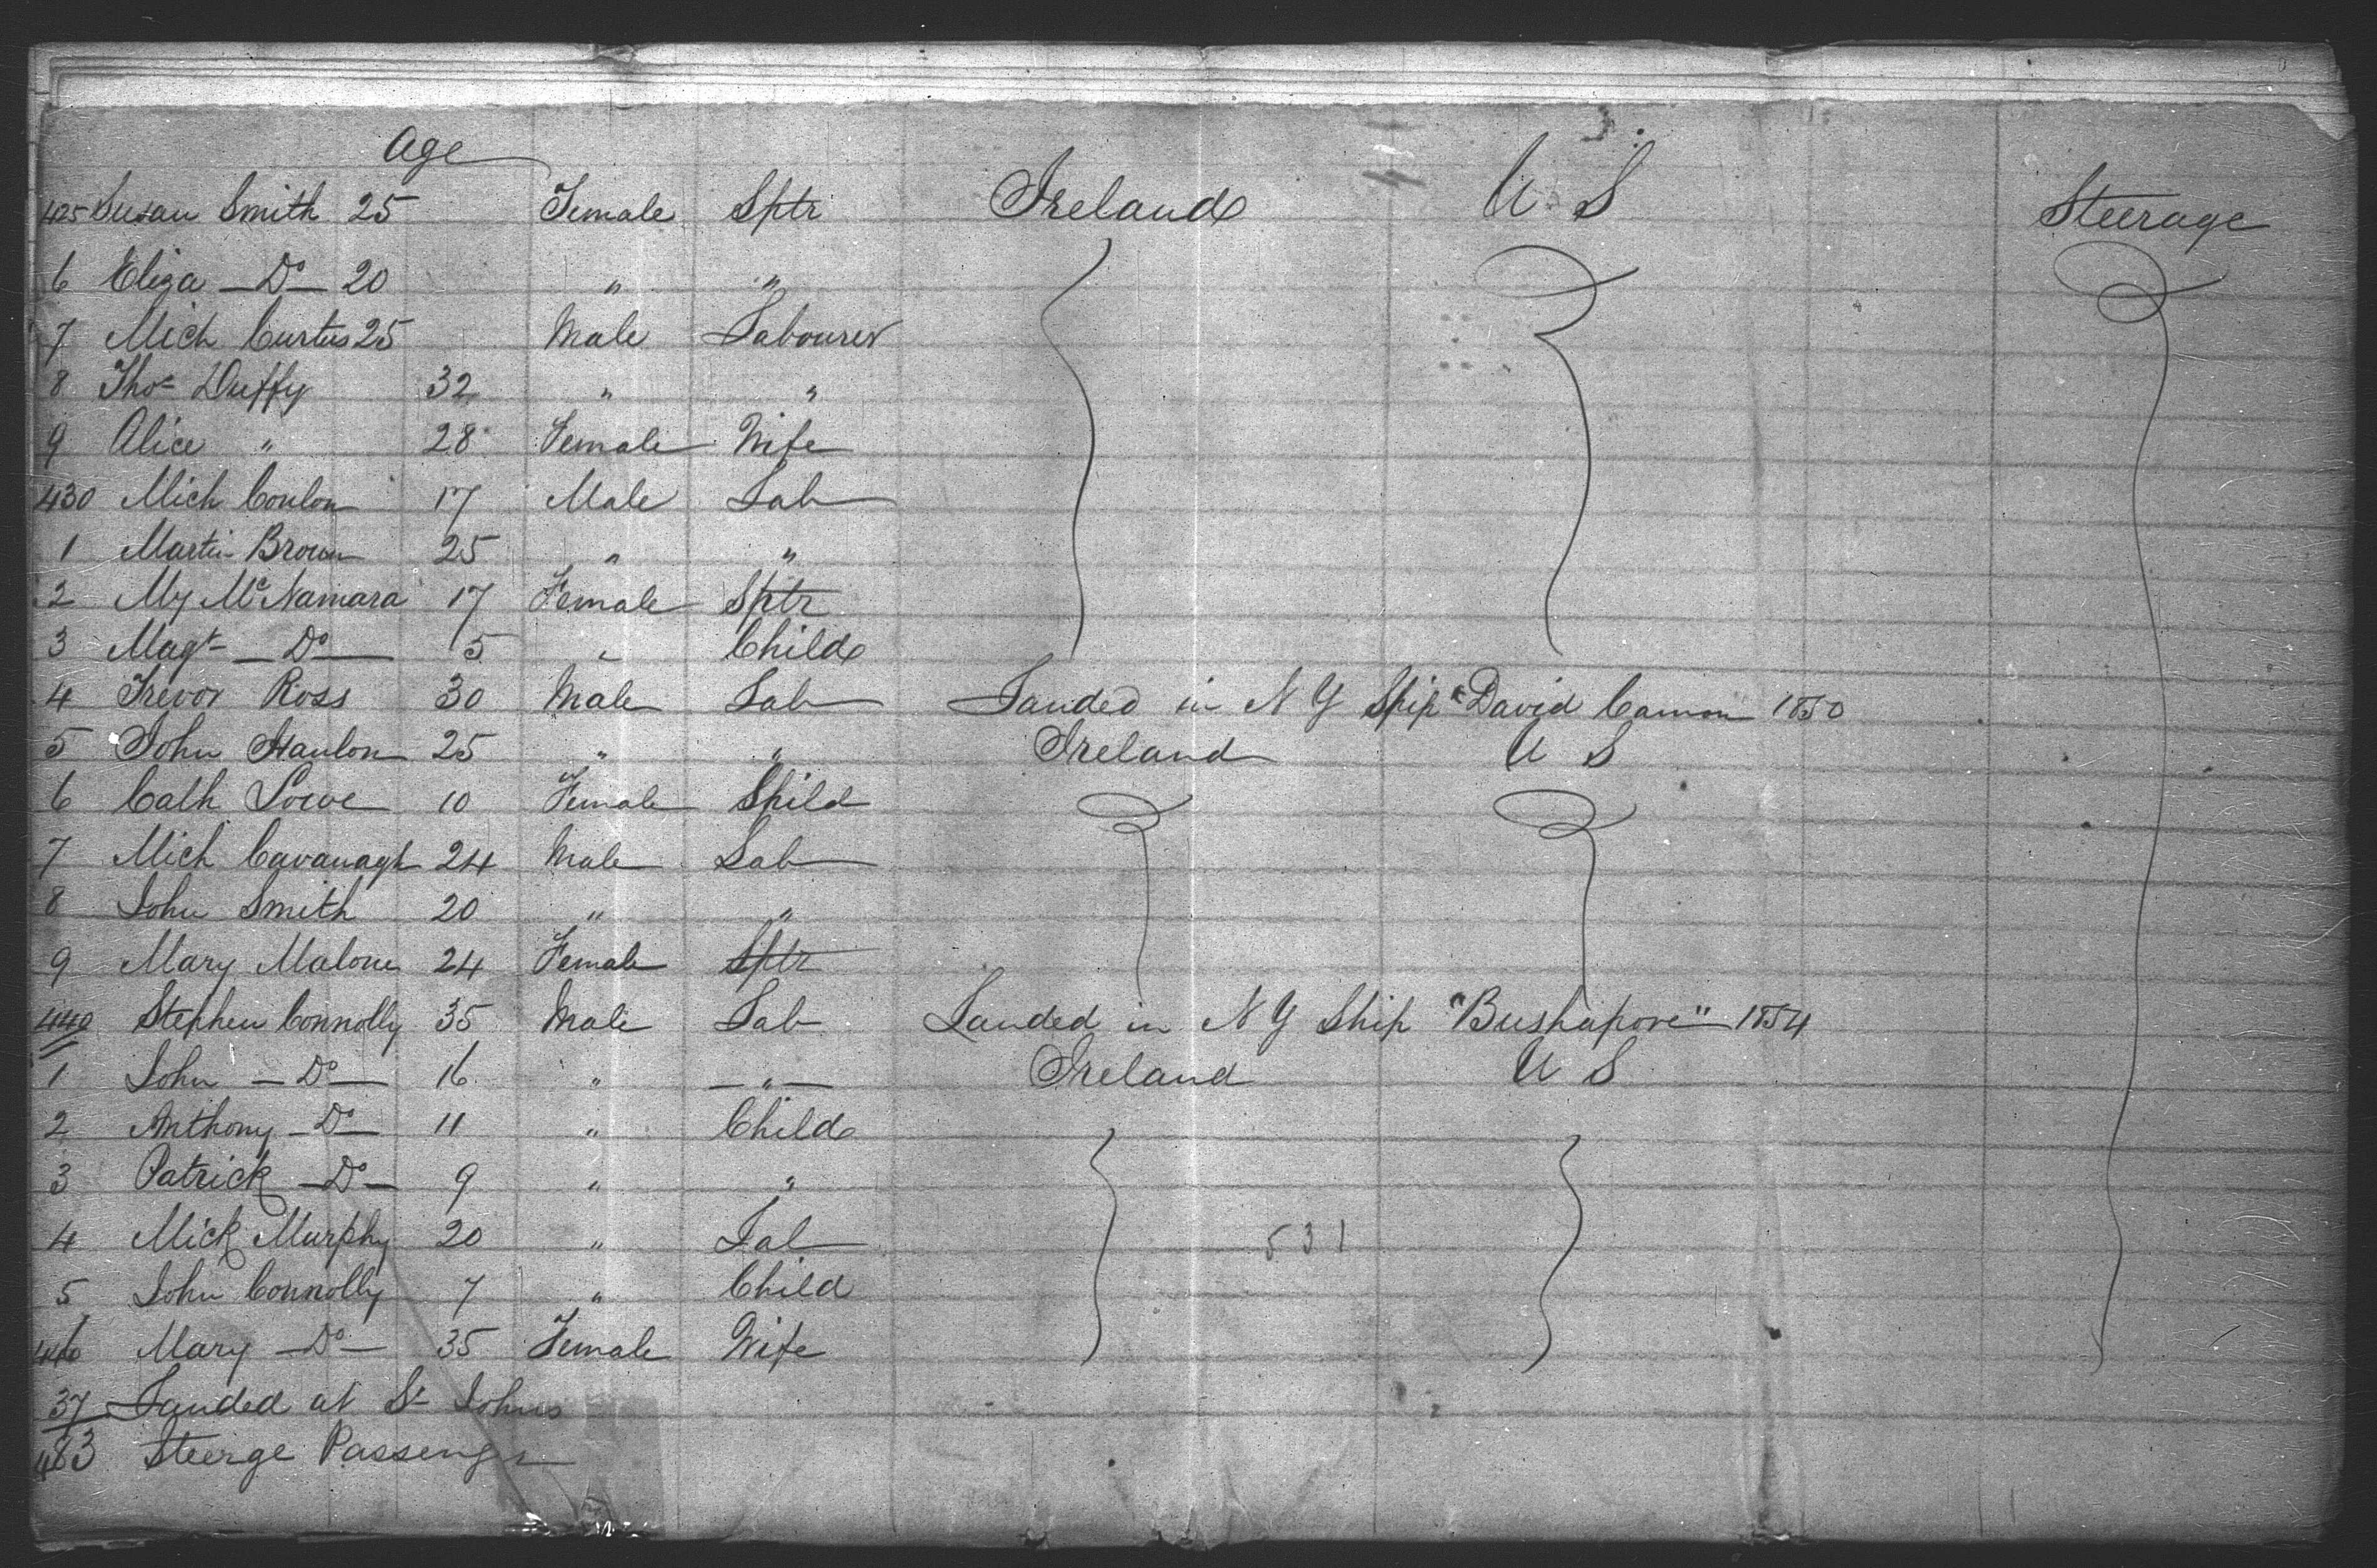 Age
425 Susan Smith 25 Female Sptr Ireland U S Steerage
6 Eliza — Do — 20 " "
7 Mich Curtus 25 Male Labourer
8 Thos Duffy 32 " "
9 Alice " 28 Female Wife
430 Mich Conlon 17 Male Lab
1 Martin Brown 25 " "
2 My McNamara 17 Female Sptr
3 Magt — Do — 5 " Child
4 Trevor Ross 30 Male Lab Landed in N Y Ship "David Cannon 1850
5 John Hanlon 25 " " Ireland U S
6 Cath Lowe 10 Female Child
7 Mich Cavanagh 24 Male Lab
8 John Smith 20 " "
9 Mary Malone 24 Female Sptr
440 Stephen Connolly 35 Male Lab Landed in N Y Ship "Bushapore" 1854
1 John — Do — 16 " — " — Ireland U S
2 Anthony — Do — 11 " Child
3 Patrick — Do — 9 " "
4 Mick Murphy 20 " Lab 531
5 John Connolly 7 " Child
446 Mary — Do — 35 Female Wife
37 Landed at St Johns
483 Steerge Passengr